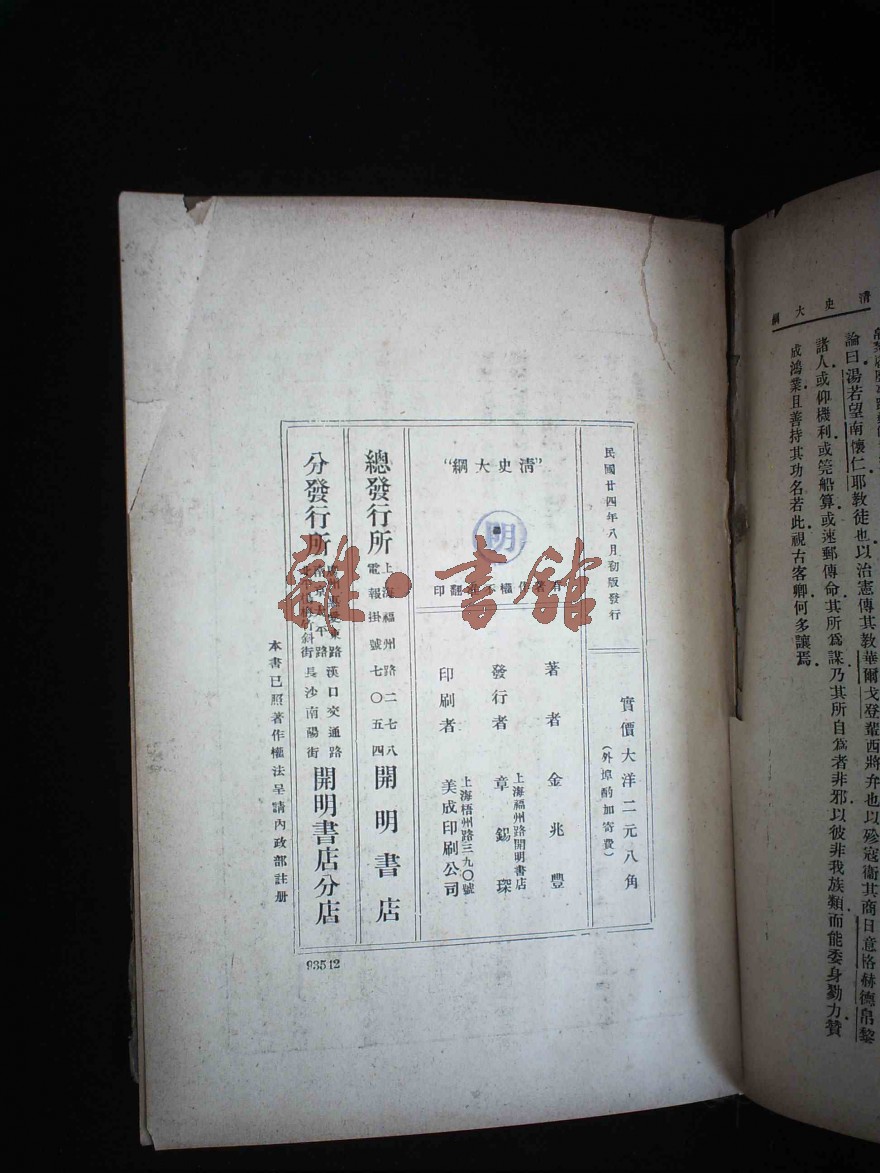 清史大綱
論曰湯若望南懷仁耶教徒也以治憲傳其教華爾戈登輩西將弁也以殄寇衞其商日意格赫德帛黎
諸人或仰機利或筦船算或速郵傳命其所爲謀乃其所自爲者非邪以彼非我族類而能委身勠力贊
成鴻業且善持其功名若此視古客卿何多讓焉
民國廿四年八月初版發行
實價大洋二元八角
(外埠酌加寄費)
"清史大綱"
明
有著作權不准翻印
著者 金兆豐
發行者 上海福州路開明書店
章錫琛
印刷者 上海梧州路三九〇號
美成印刷公司
總發行所 上海福州路二七八
電報掛號七〇五四
開明書店
分發行所
惠愛東路 漢口交通路
南京太平路
楊梅竹斜街 長沙南陽街
開明書店分店
本書已照著作權法呈請內政部註册
93512
雜·書館